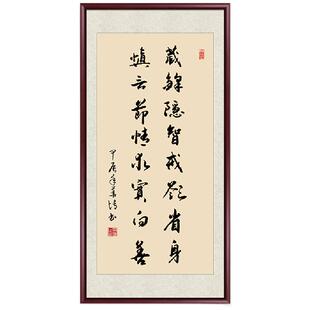 藏鋒隱智戒欲省身
慎言節情求實向善
甲辰年書